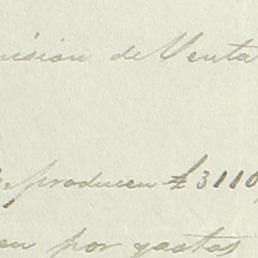 misión de Venta
producen £3110
en por gastos